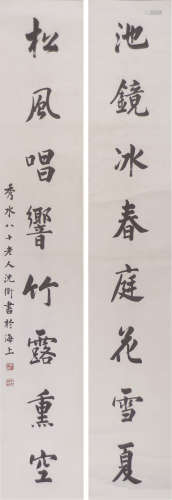 池鏡冰春庭花雪夏
松風唱響竹露熏空
秀水八十老人沈衛書於海上